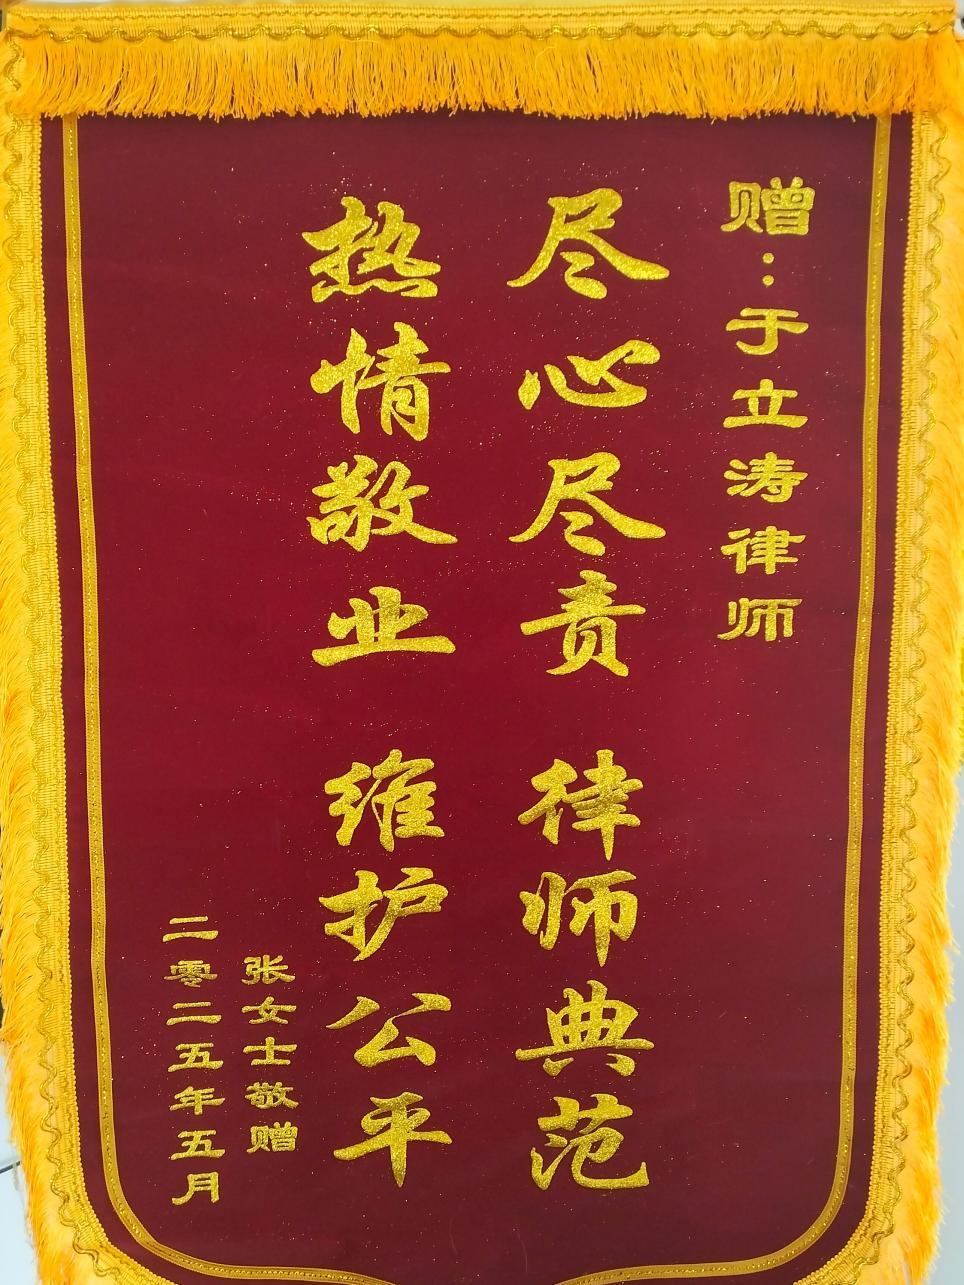 赠：于立涛律师
尽心尽责 律师典范
热情敬业 维护公平
张女士敬赠
二零二五年五月